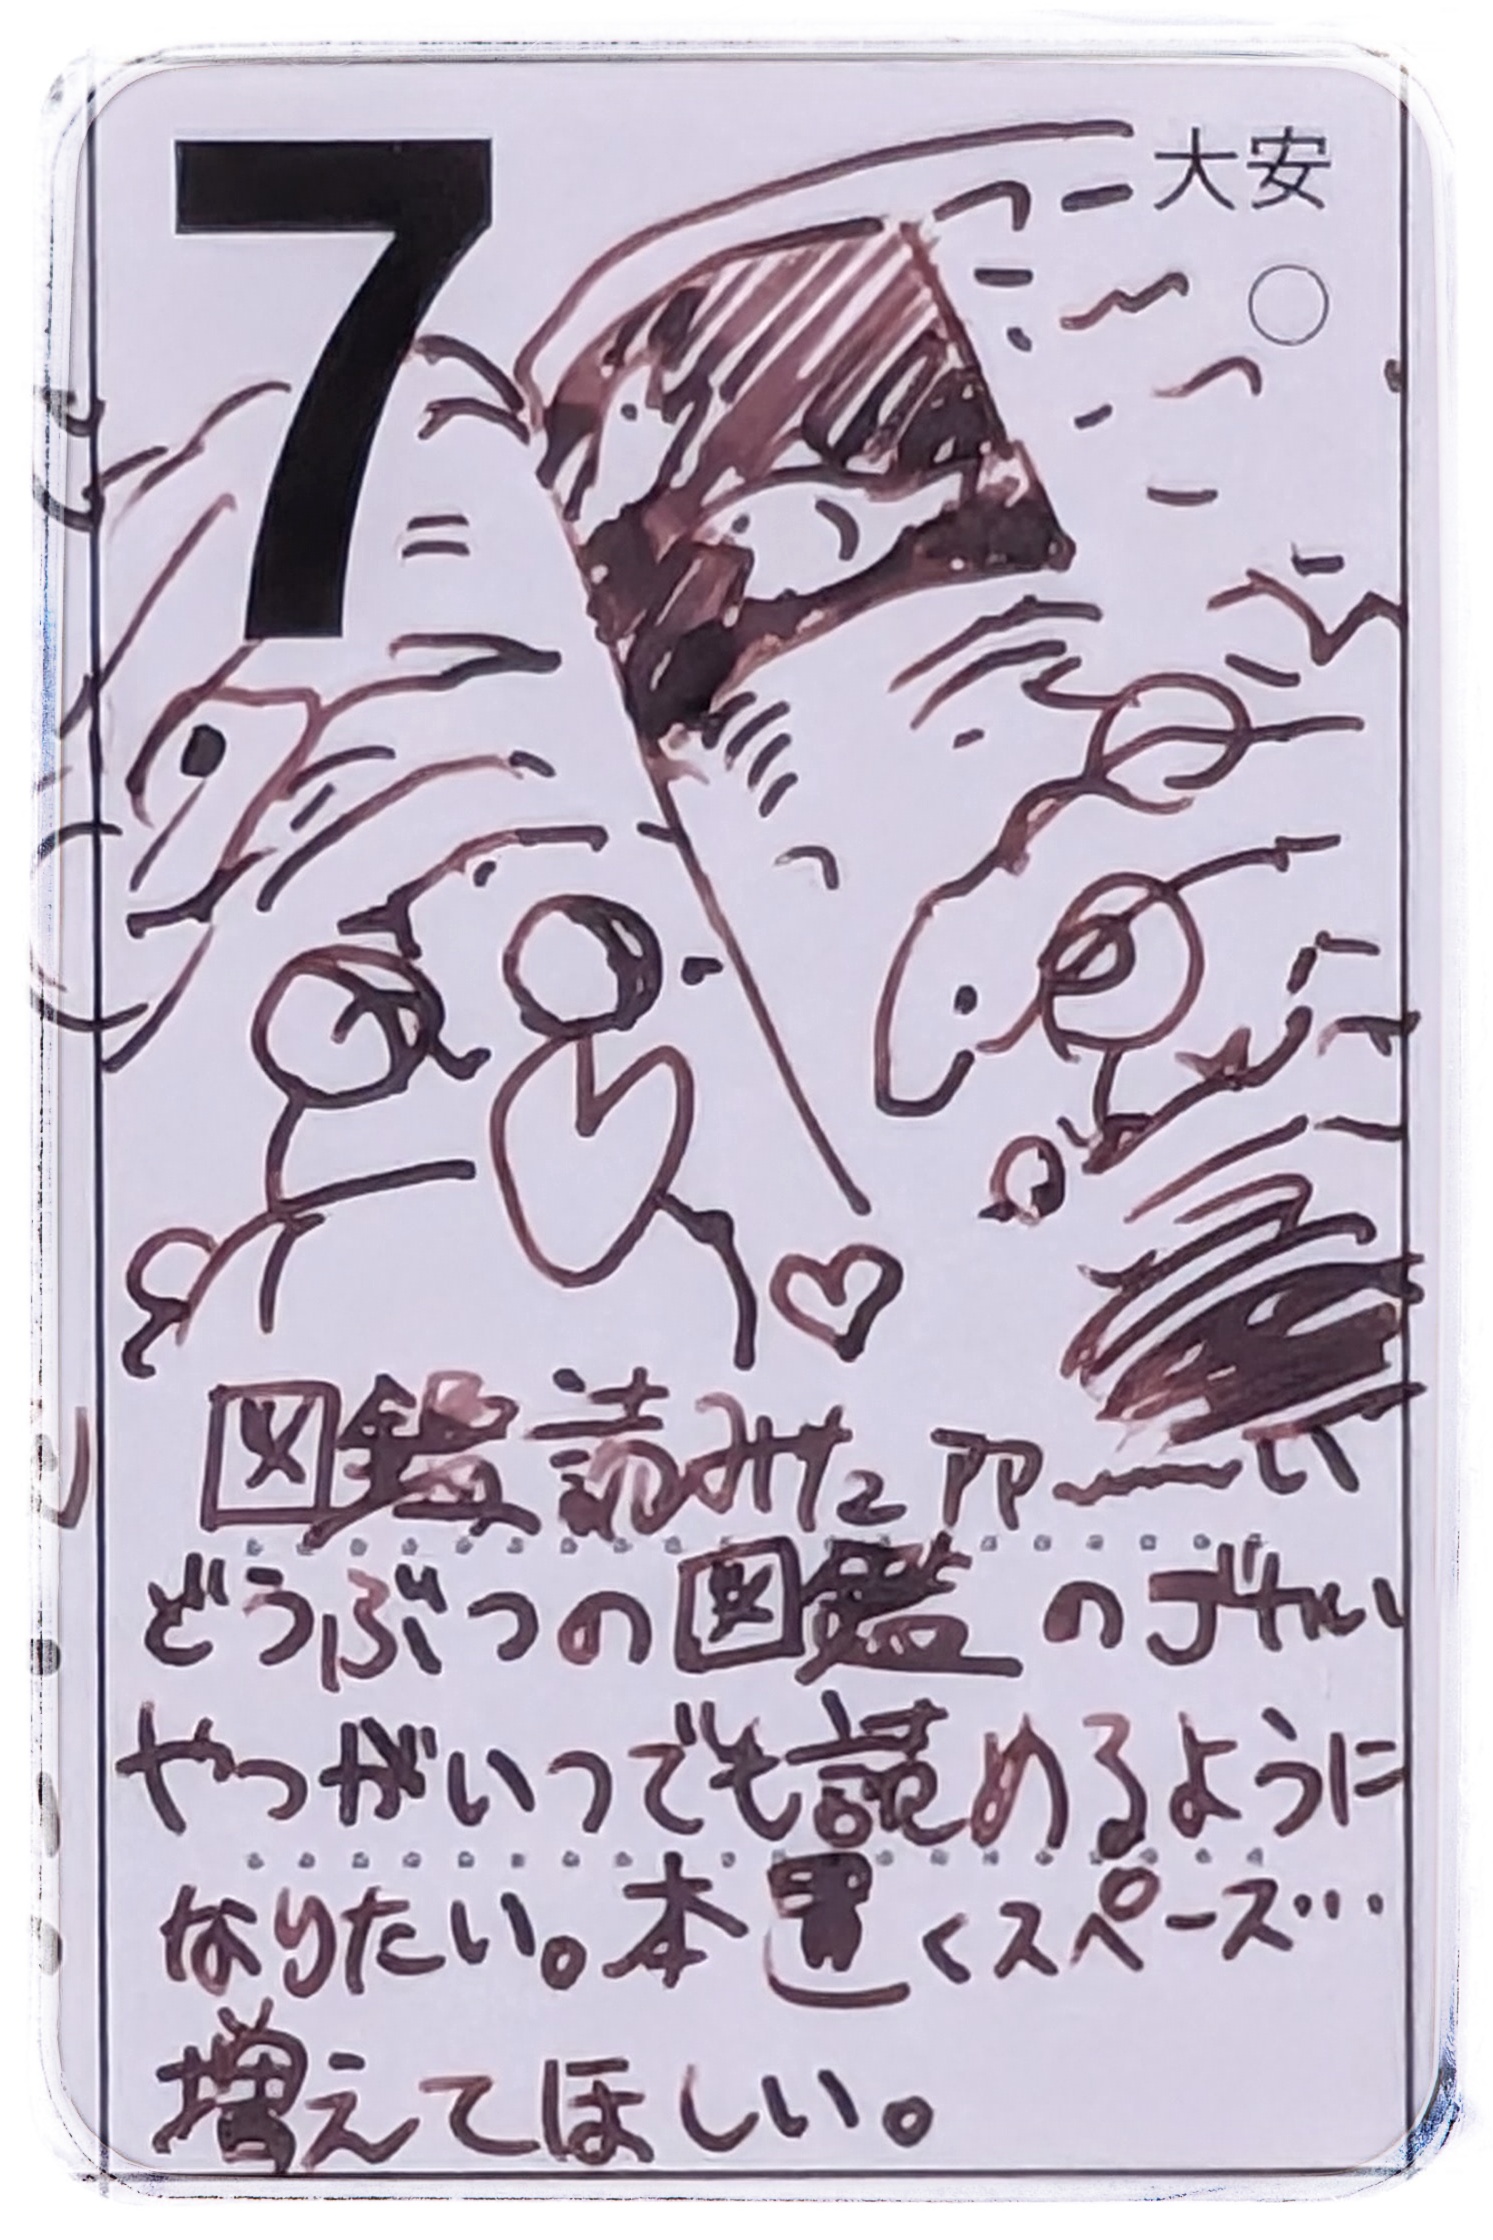 7
大安
図鑑読みたァァ～～い
どうぶつの図鑑のぶ
やつがいつでも読めるように
なりたい。本置くスペース…
増えてほしい。